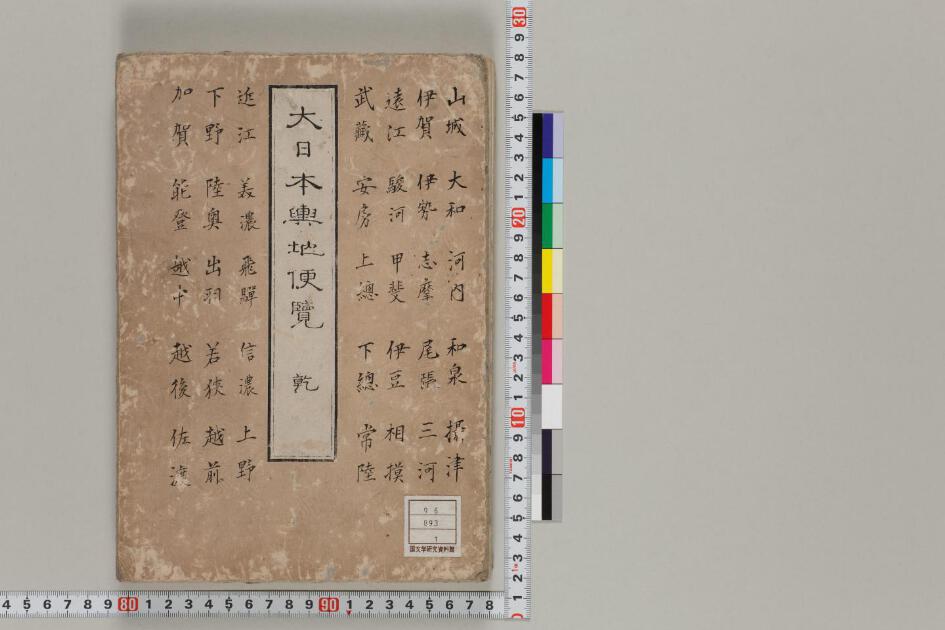 山城 大和 河內 和泉 攝津
伊賀 伊勢 志摩 尾張 三河
遠江 駿河 甲斐 伊豆 相摸
武藏 安房 上總 下總 常陸
大日本輿地便覽 乾
近江 美濃 飛驒 信濃 上野
下野 陸奧 出羽 若狹 越前
加賀 能登 越中 越後 佐渡
96
893
1
国文学研究資料館
4 5 6 7 8 9 80 1 2 3 4 5 6 7 8 9 90 1 2 3 4 5 6 7 8
30 9 8 7 6 5 4 3 2 1 20 9 8 7 6 5 4 3 2 1 10 9 8 7 6 5 4 3 2 1